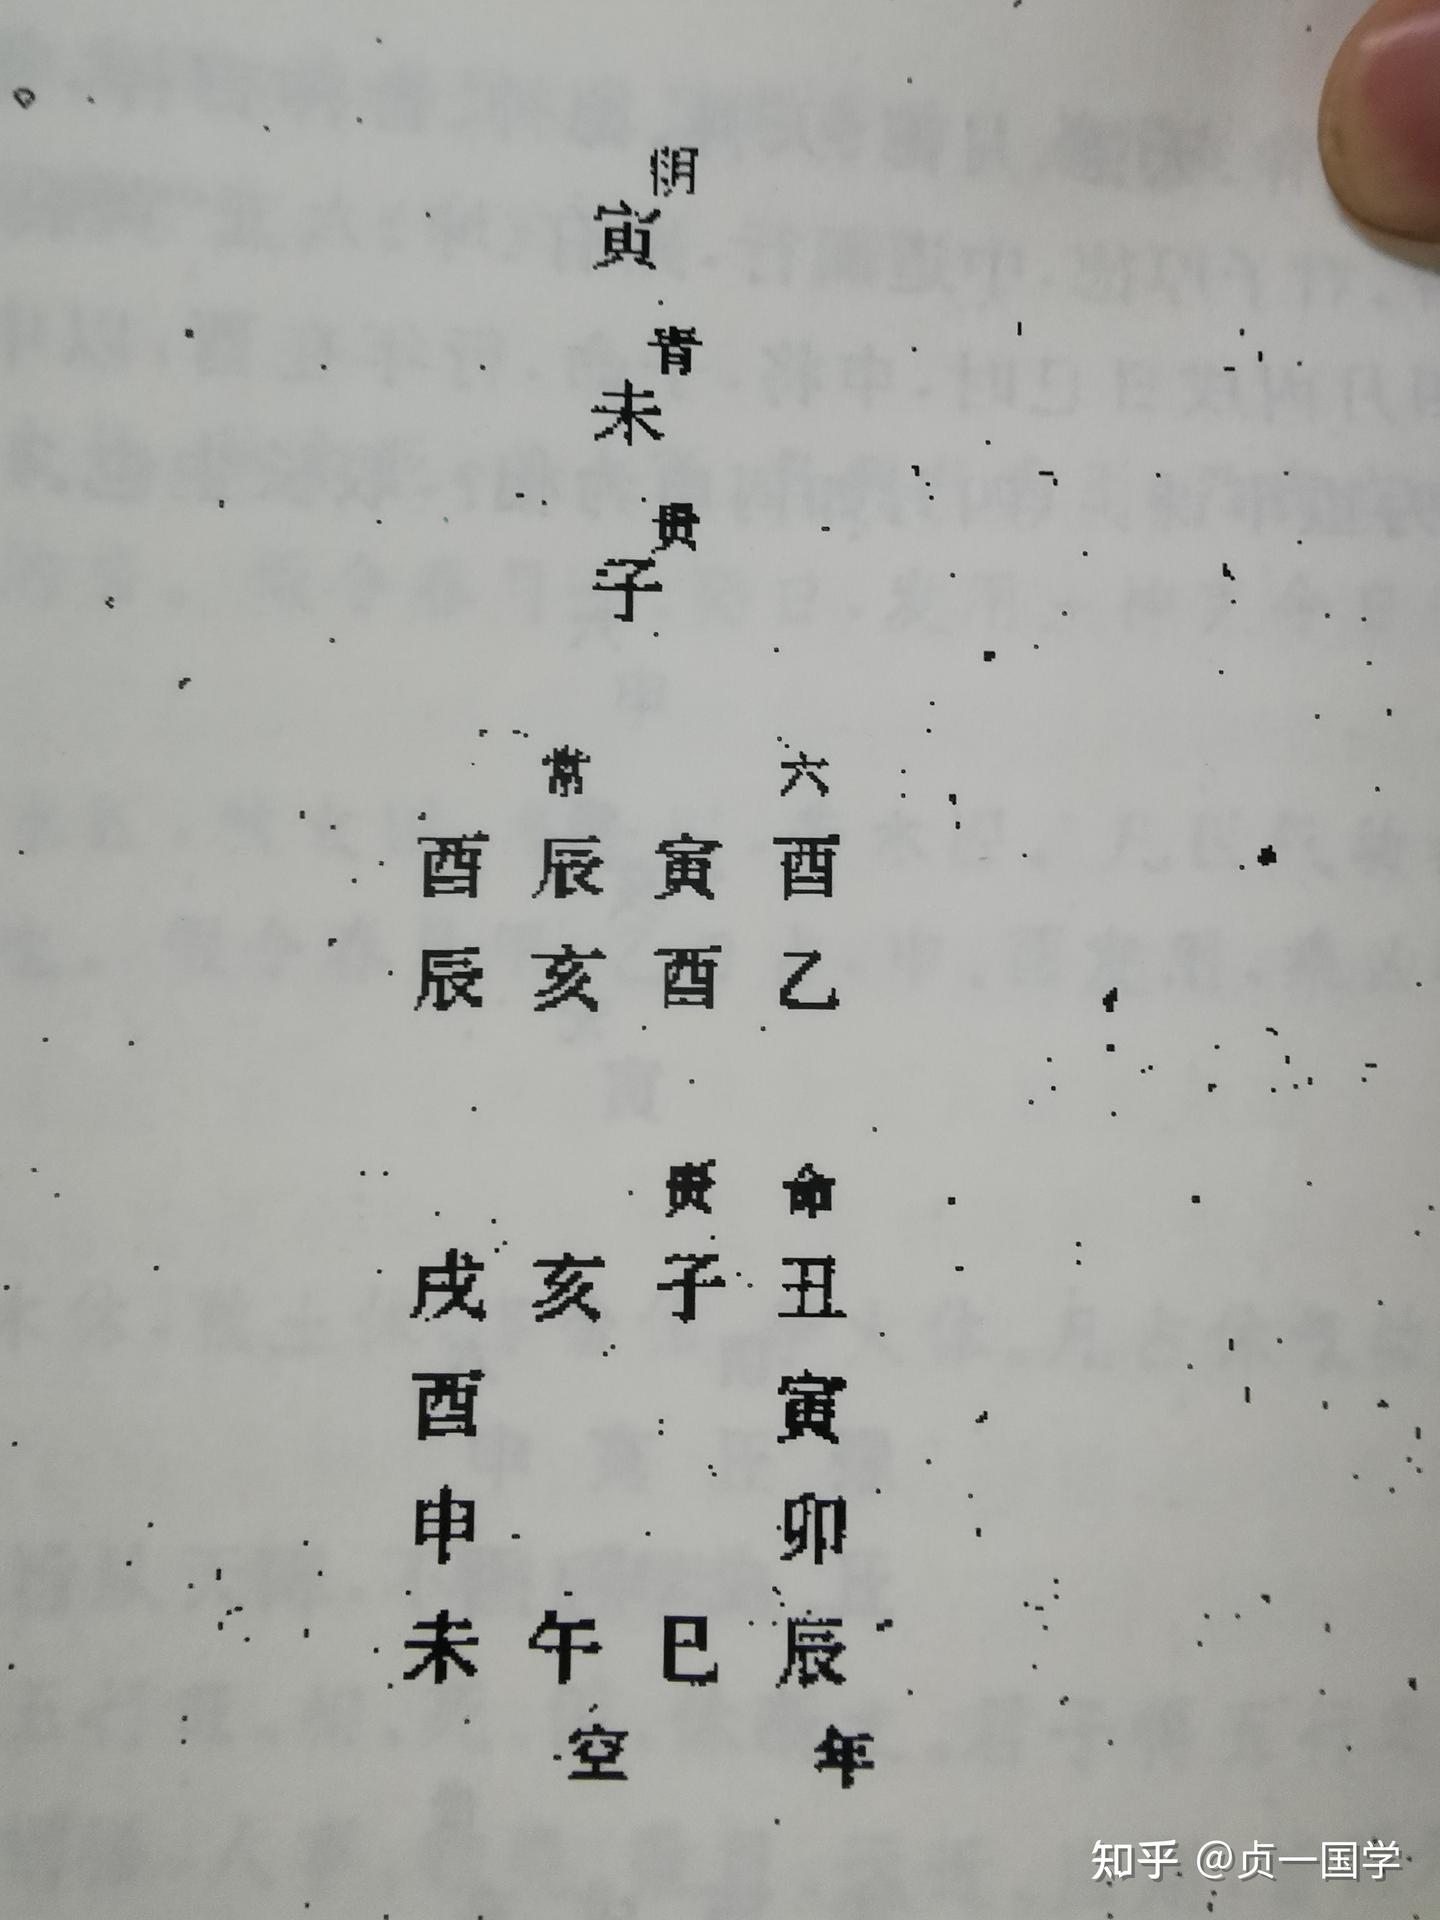 阴
寅
青
未
贵
子
常 六
酉 辰 寅 酉
辰 亥 酉 乙
贵 命
戌 亥 子 丑
酉 寅
申 卯
未 午 巳 辰
空 年
知乎 @贞一国学